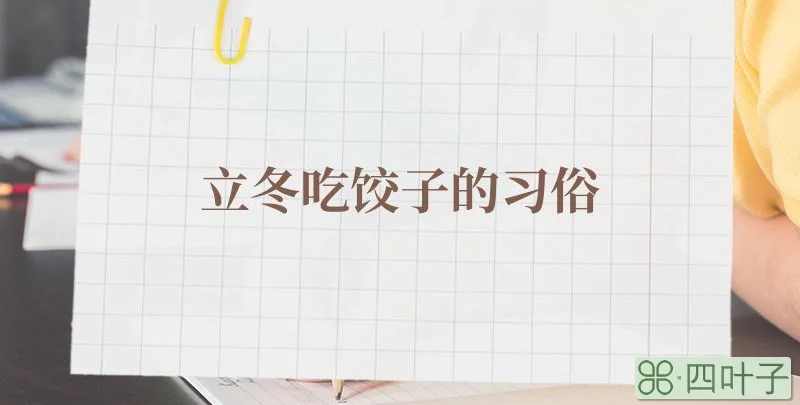 立冬吃饺子的习俗
四叶子